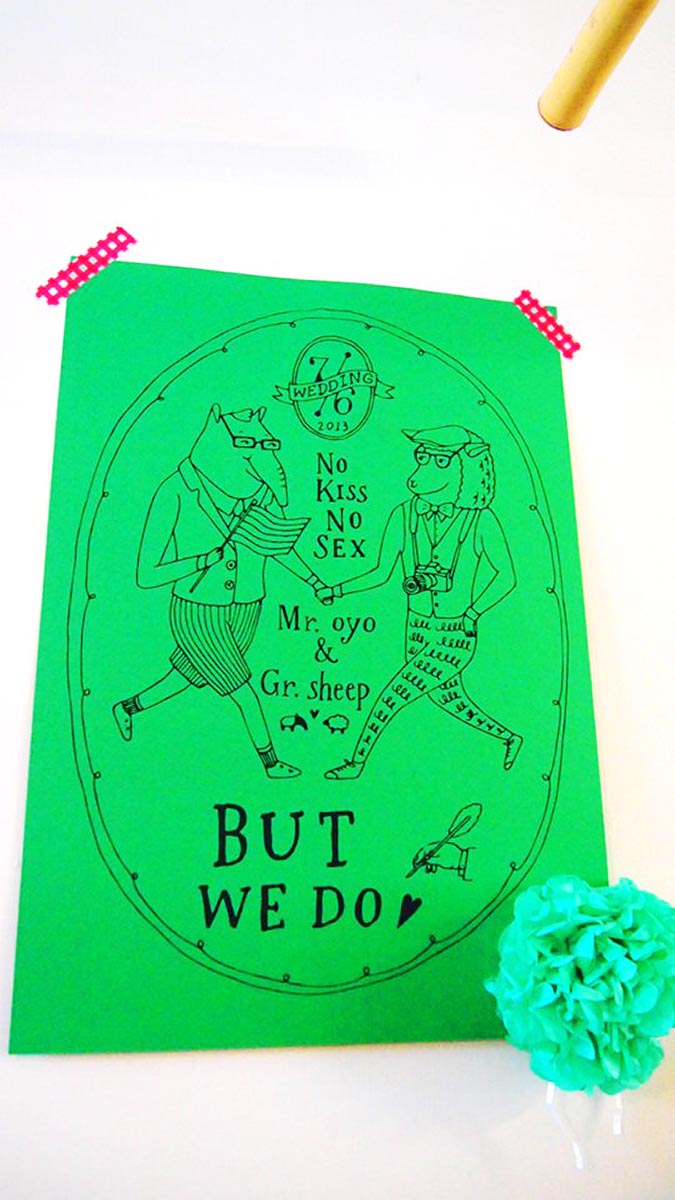 7/
WEDDING
/6
2013
No
Kiss
No
Sex
Mr. oyo
&
Gr. sheep
BUT
WE DO